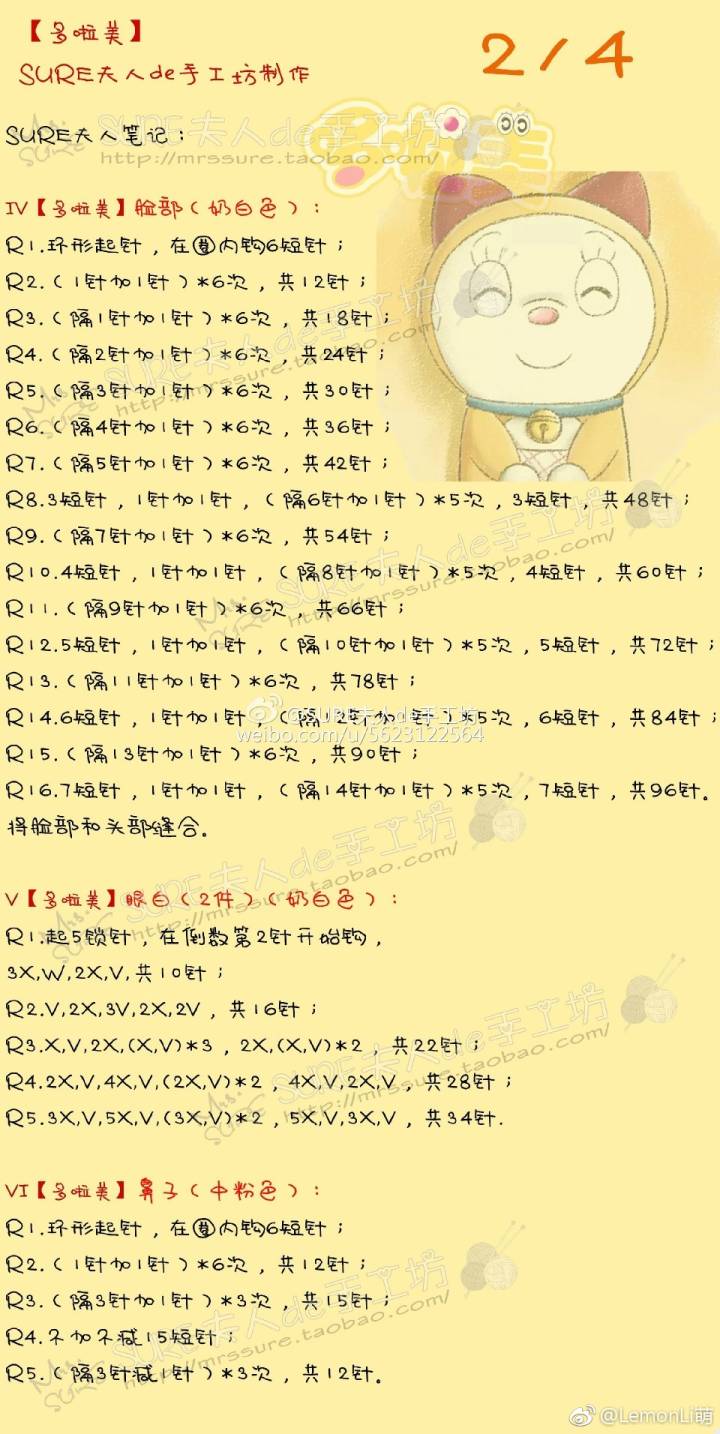 【多啦美】
2/4
SURE夫人de手工坊制作
SURE夫人笔记：
多啦美
SURE夫人de手工坊
http://mrssure.taobao.com/
IV【多啦美】脸部(奶白色)：
R1.环形起针，在圈内钩6短针；
R2.(1针加1针)*6次，共12针；
R3.(隔1针加1针)*6次，共18针；
R4.(隔2针加1针)*6次，共24针；
R5.(隔3针加1针)*6次，共30针；
R6.(隔4针加1针)*6次，共36针；
R7.(隔5针加1针)*6次，共42针；
R8.3短针，1针加1针，(隔6针加1针)*5次，3短针，共48针；
R9.(隔7针加1针)*6次，共54针；
R10.4短针，1针加1针，(隔8针加1针)*5次，4短针，共60针；
R11.(隔9针加1针)*6次，共66针；
R12.5短针，1针加1针，(隔10针加1针)*5次，5短针，共72针；
R13.(隔11针加1针)*6次，共78针；
R14.6短针，1针加1针，(隔12针加1针)*5次，6短针，共84针；
@SURE夫人de手工坊
weibo.com/u/5623122564
R15.(隔13针加1针)*6次，共90针；
R16.7短针，1针加1针，(隔14针加1针)*5次，7短针，共96针。
将脸部和头部缝合。
V【多啦美】眼白(2件)(奶白色)：
R1.起5锁针，在倒数第2针开始钩，
3X,W,2X,V,共10针；
R2.V,2X,3V,2X,2V，共16针；
R3.X,V,2X,(X,V)*3，2X,(X,V)*2，共22针；
R4.2X,V,4X,V,(2X,V)*2，4X,V,2X,V，共28针；
R5.3X,V,5X,V,(3X,V)*2，5X,V,3X,V，共34针.
VI【多啦美】鼻子(中粉色)：
R1.环形起针，在圈内钩6短针；
R2.(1针加1针)*6次，共12针；
R3.(隔3针加1针)*3次，共15针；
R4.不加不减15短针；
R5.(隔3针减1针)*3次，共12针。
@LemonLi萌